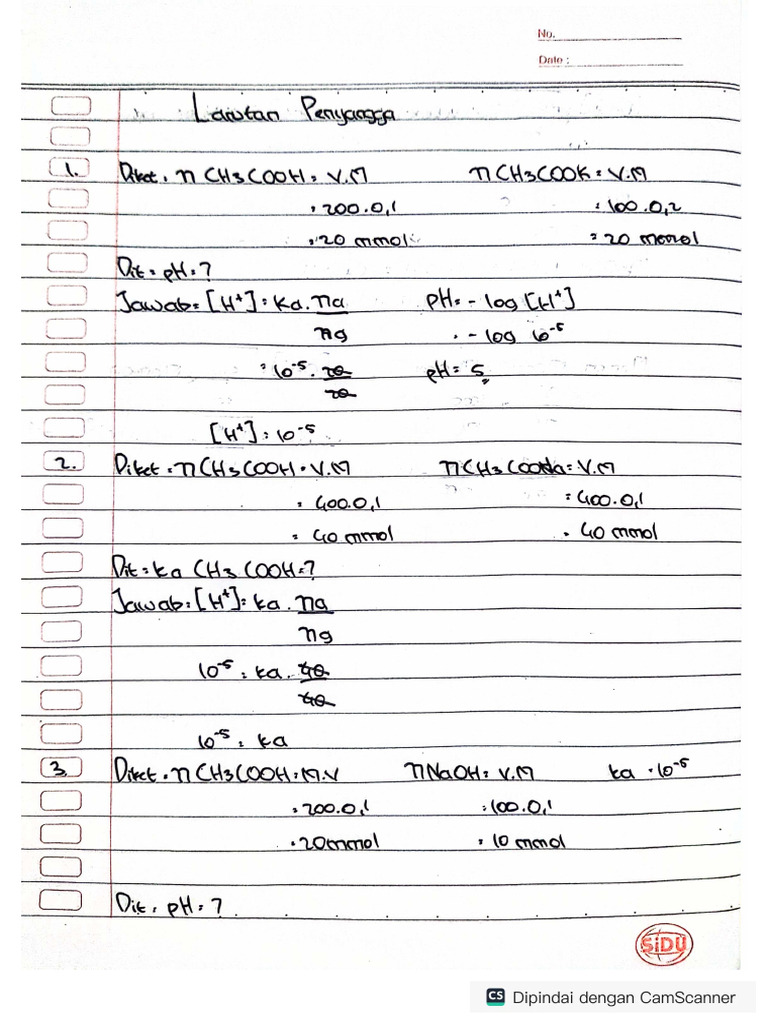 No.
Date :
Larutan Penyangga
1. Diket : n CH3COOH = V.M n CH3COOK = V.M
= 200.0,1 = 100.0,2
= 20 mmol = 20 mmol
Dit = pH = ?
Jawab = [H⁺] = ka. na pH = - log [H⁺]
ng = - log 10⁻⁵
= 10⁻⁵. 20 pH = 5
20
[H⁺] = 10⁻⁵
2. Diket = n CH3COOH = V.M n CH3COONa = V.M
= 400.0,1 = 400.0,1
= 40 mmol = 40 mmol
Dit = ka CH3COOH = ?
Jawab = [H⁺] = ka. na
ng
10⁻⁵ = ka. 40
40
10⁻⁵ = ka
3. Diket = n CH3COOH = M.V n NaOH = V.M ka = 10⁻⁵
= 200.0,1 = 100.0,1
= 20 mmol = 10 mmol
Dit = pH = ?
SiDU
CS Dipindai dengan CamScanner